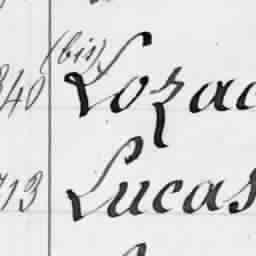 840 (bis) Lozac
713 Lucas